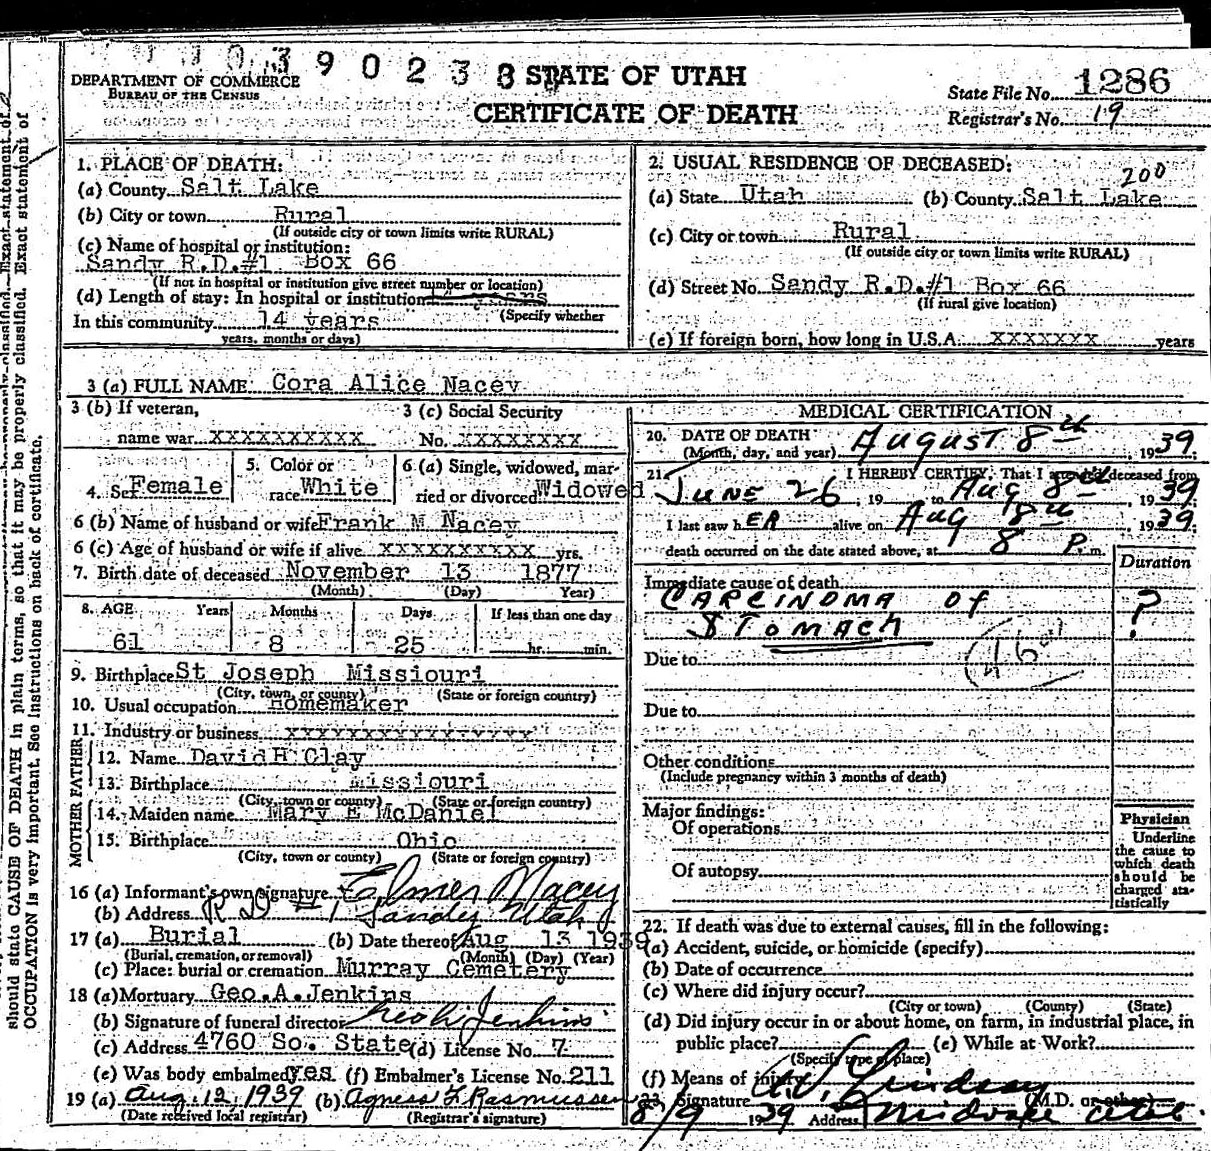 3 9 0 2 3 8
DEPARTMENT OF COMMERCE
BUREAU OF THE CENSUS
STATE OF UTAH
CERTIFICATE OF DEATH
State File No. 1286
Registrar's No. 19
should state CAUSE OF DEATH in plain terms, so that it may be properly classified. Exact statement of
OCCUPATION is very important. See instructions on back of certificate.
1. PLACE OF DEATH:
(a) County Salt Lake
(b) City or town Rural
(If outside city or town limits write RURAL)
(c) Name of hospital or institution:
Sandy R.D.#1 Box 66
(If not in hospital or institution give street number or location)
(d) Length of stay: In hospital or institution
(Specify whether
In this community 14 years
years, months or days)
2. USUAL RESIDENCE OF DECEASED:
200
(a) State Utah (b) County Salt Lake
(c) City or town Rural
(If outside city or town limits write RURAL)
(d) Street No. Sandy R.D.#1 Box 66
(If rural give location)
(e) If foreign born, how long in U.S.A. XXXXXXX years
3 (a) FULL NAME Cora Alice Nacey
3 (b) If veteran, 3 (c) Social Security
name war XXXXXXXXXX No. XXXXXXXX
4. Sex Female 5. Color or race White 6 (a) Single, widowed, married or divorced Widowed
6 (b) Name of husband or wife Frank M Nacey
6 (c) Age of husband or wife if alive XXXXXXXXXX yrs.
7. Birth date of deceased November 13 1877
(Month) (Day) Year)
8. AGE Years Months Days If less than one day
61 8 25 hr. min.
9. Birthplace St Joseph Missiouri
(City, town, or county) (State or foreign country)
10. Usual occupation Homemaker
11. Industry or business
FATHER
12. Name David H Clay
13. Birthplace Missiouri
(City, town or county) (State or foreign country)
MOTHER
14. Maiden name Mary E McDaniel
15. Birthplace Ohio
(City, town or county) (State or foreign country)
16 (a) Informant's own signature Elmer Nacey
(b) Address R D #1 Sandy Utah
17 (a) Burial (b) Date thereof Aug 13 1939
(Burial, cremation, or removal) (Month) (Day) (Year)
(c) Place: burial or cremation Murray Cemetery
18 (a) Mortuary Geo.A.Jenkins
(b) Signature of funeral director Jenkins
(c) Address 4760 So. State (d) License No. 7
(e) Was body embalmed yes (f) Embalmer's License No. 211
19 (a) Aug. 12, 1939 (b) Agness F Rasmussen
(Date received local registrar) (Registrar's signature)
MEDICAL CERTIFICATION
20. DATE OF DEATH August 8th 1939.
(Month, day, and year)
21. I HEREBY CERTIFY, That I deceased from
June 26, 19 to Aug 8th, 1939
I last saw hER alive on Aug 8th, 1939;
death occurred on the date stated above, at 8 P. m.
Duration
Immediate cause of death
CARCINOMA of ?
STOMACH
Due to
Due to
Other conditions
(Include pregnancy within 3 months of death)
Major findings:
Of operations
Of autopsy
Physician
Underline
the cause to
which death
should be
charged sta-
tistically
22. If death was due to external causes, fill in the following:
(a) Accident, suicide, or homicide (specify)
(b) Date of occurrence
(c) Where did injury occur?
(City or town) (County) (State)
(d) Did injury occur in or about home, on farm, in industrial place, in
public place? (e) While at Work?
(Specify type of place)
(f) Means of injury
23. Signature Lindsay (M.D. or other)
8/9 1939 Address Midvale Utah.